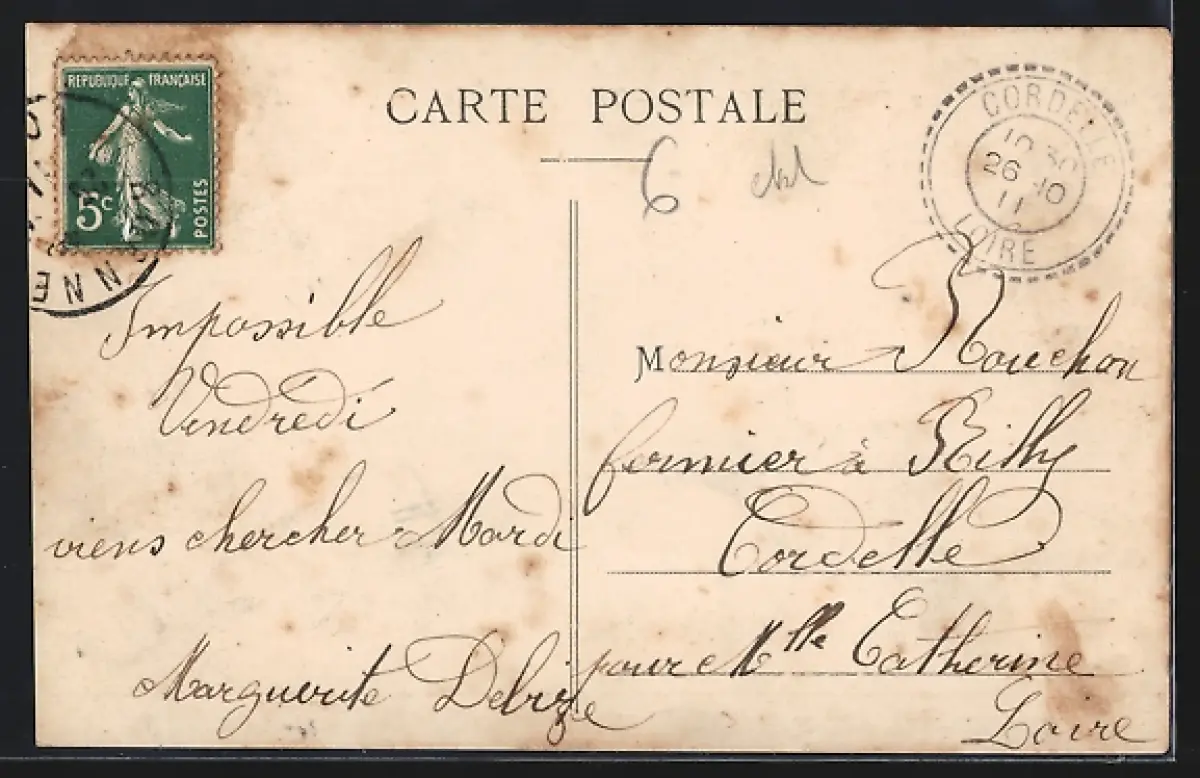 CARTE POSTALE
REPUBLIQUE FRANÇAISE
5c
POSTES
NNE
CORDELLE
10 30
26 10
11
LOIRE
6
Impossible
Vendredi
viens chercher Mardi
Marguerite Debize
Monsieur Rouchon
fermier à Rilly
Cordelle
pour Mlle Catherine
Loire